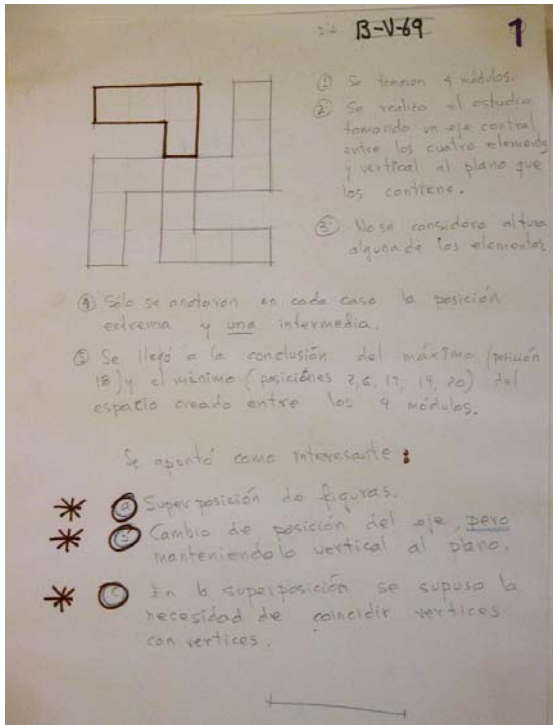 Día B-V-69
1
① Se toman 4 módulos.
② Se realizó el estudio
tomando un eje central
entre los cuatro elementos
y vertical al plano que
los contiene.
③ No se consideró altura
alguna de los elementos
④ Sólo se anotaron en cada caso la posición
extrema y una intermedia.
⑤ Se llegó a la conclusión del máximo (posición
18) y el mínimo (posiciones 2, 6, 17, 19, 20) del
espacio creado entre los 4 módulos.
Se apuntó como interesante:
* ⓐ Superposición de figuras.
* ⓑ Cambio de posición del eje, pero
manteniendolo vertical al plano.
* ⓒ En la superposición se supuso la
necesidad de coincidir vertices
con vertices.